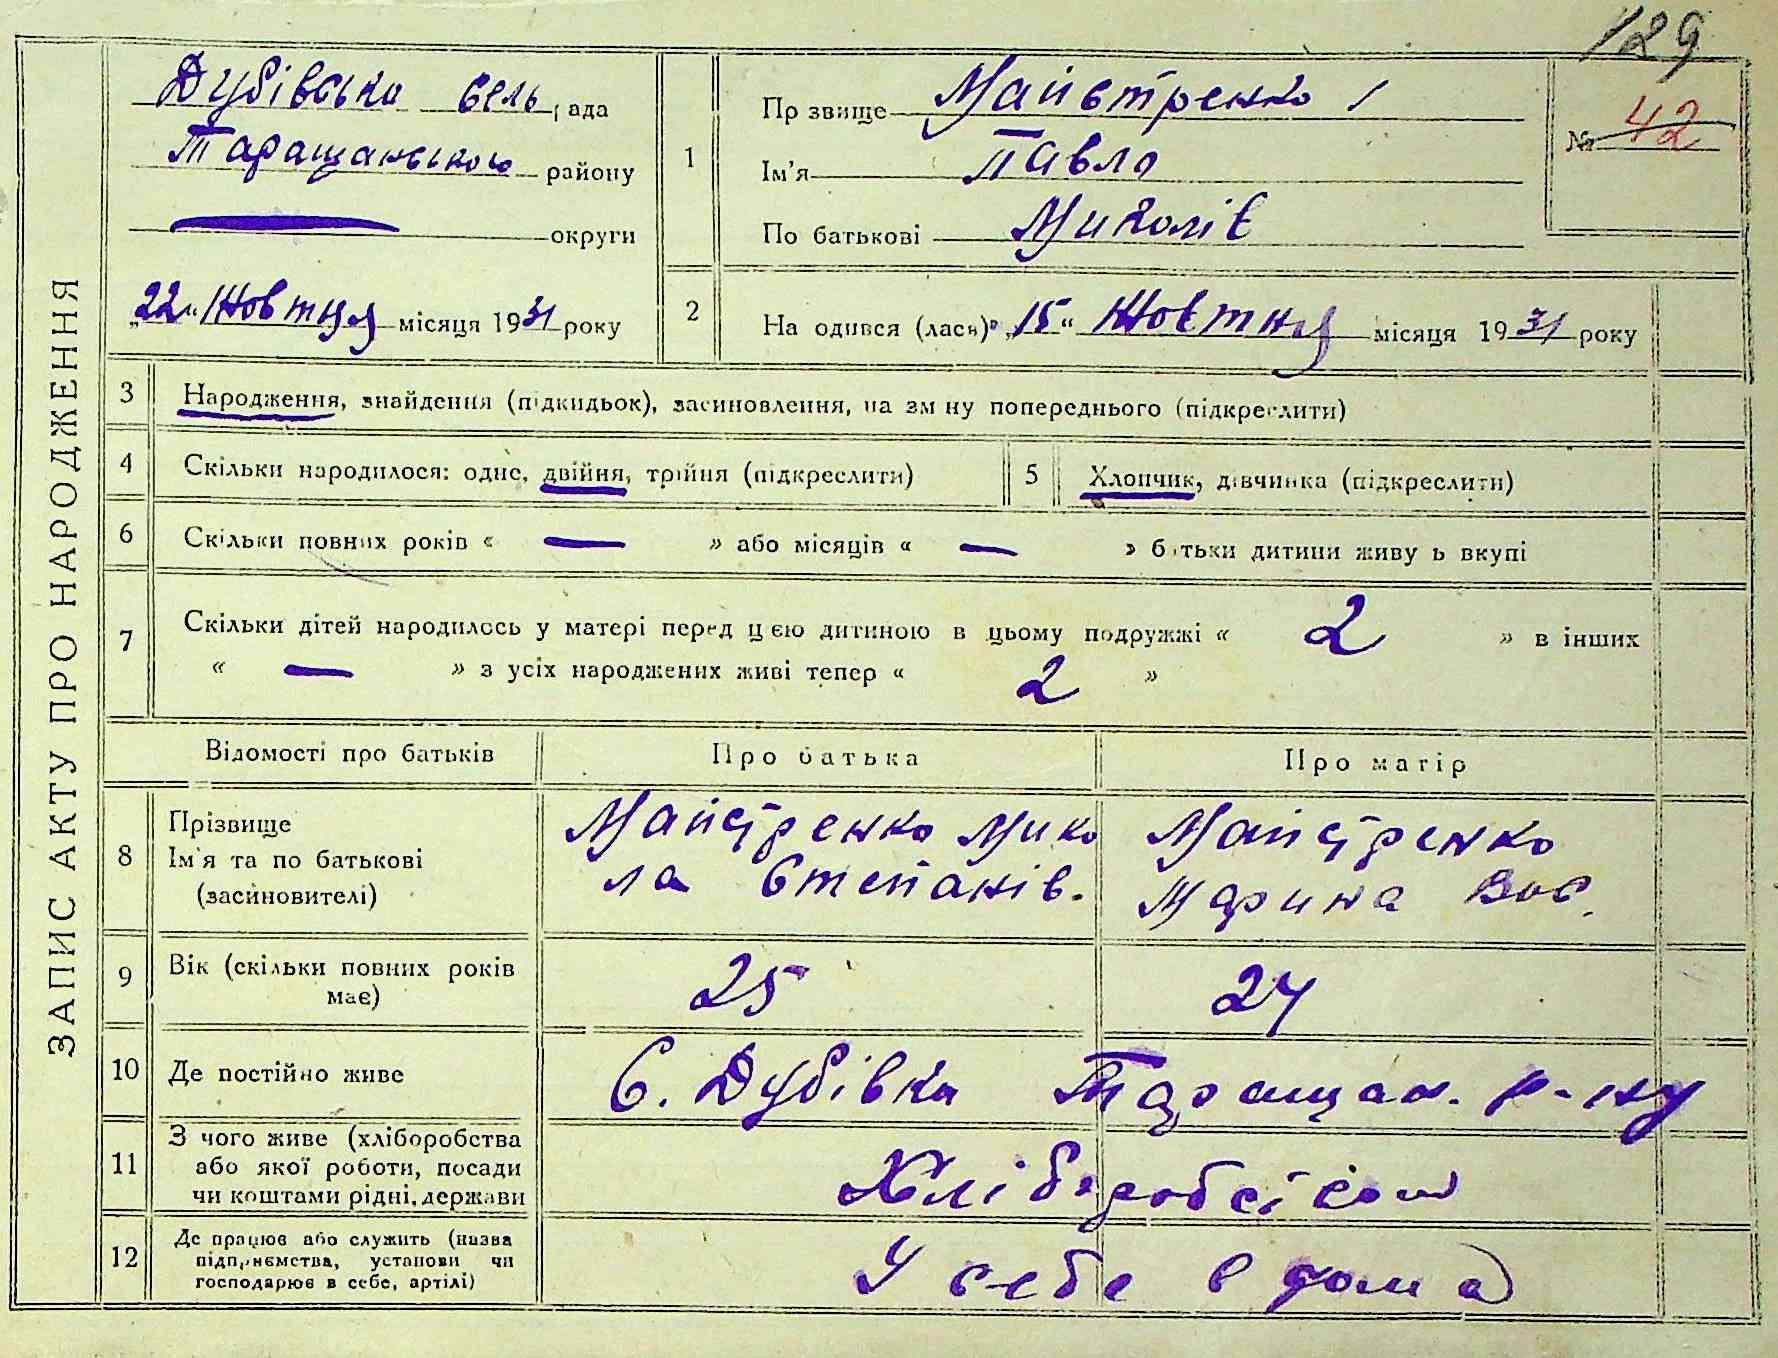 129
ЗАПИС АКТУ ПРО НАРОДЖЕННЯ
Дубівська сель рада
Таращанського району
округи
„22“ Жовтня місяця 1931 року
1
Прізвище Майстренко 1
Ім'я Павло
По батькові Миколів
№ 42
2 На одився (лася) „15“ Жовтня місяця 1931 року
3 Народження, знайдення (підкидьок), засиновлення, на зміну попереднього (підкреслити)
4 Скільки народилося: одне, двійня, трійня (підкреслити)
5 Хлопчик, дівчинка (підкреслити)
6 Скільки повних років « — » або місяців « — » батьки дитини живуть вкупі
7 Скільки дітей народилось у матері перед цією дитиною в цьому подружжі « 2 » в інших
« — » з усіх народжених живі тепер « 2 »
Відомості про батьків Про батька Про матір
8 Прізвище
Ім'я та по батькові
(засиновителі)
Майстренко Мико
ла Степанів.
Майстренко
Марина Вас.
9 Вік (скільки повних років
має)
25 24
10 Де постійно живе С. Дубівка Таращан. р-ну
11 З чого живе (хліборобства
або якої роботи, посади
чи коштами рідні, держави
Хліборобством
12 Де працює або служить (назва
підприємства, установи чи
господарює в себе, артілі)
У себе в дома